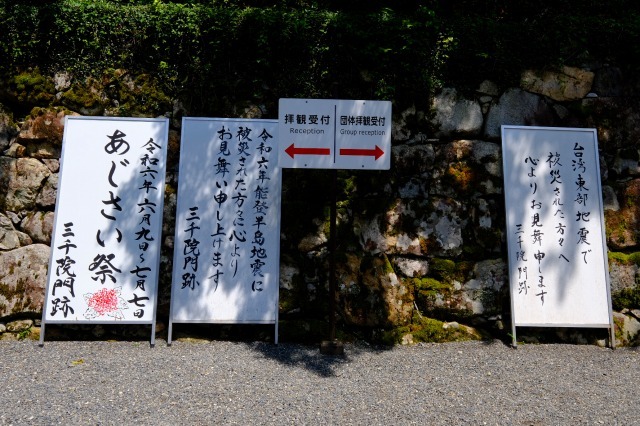 令和六年六月九日～七月七日
あじさい祭
三千院門跡
令和六年能登半島地震に
被災された方々に心より
お見舞い申し上げます
三千院門跡
拝観受付
Reception
団体拝観受付
Group reception
台湾東部地震で
被災された方々へ
心よりお見舞申します
三千院門跡